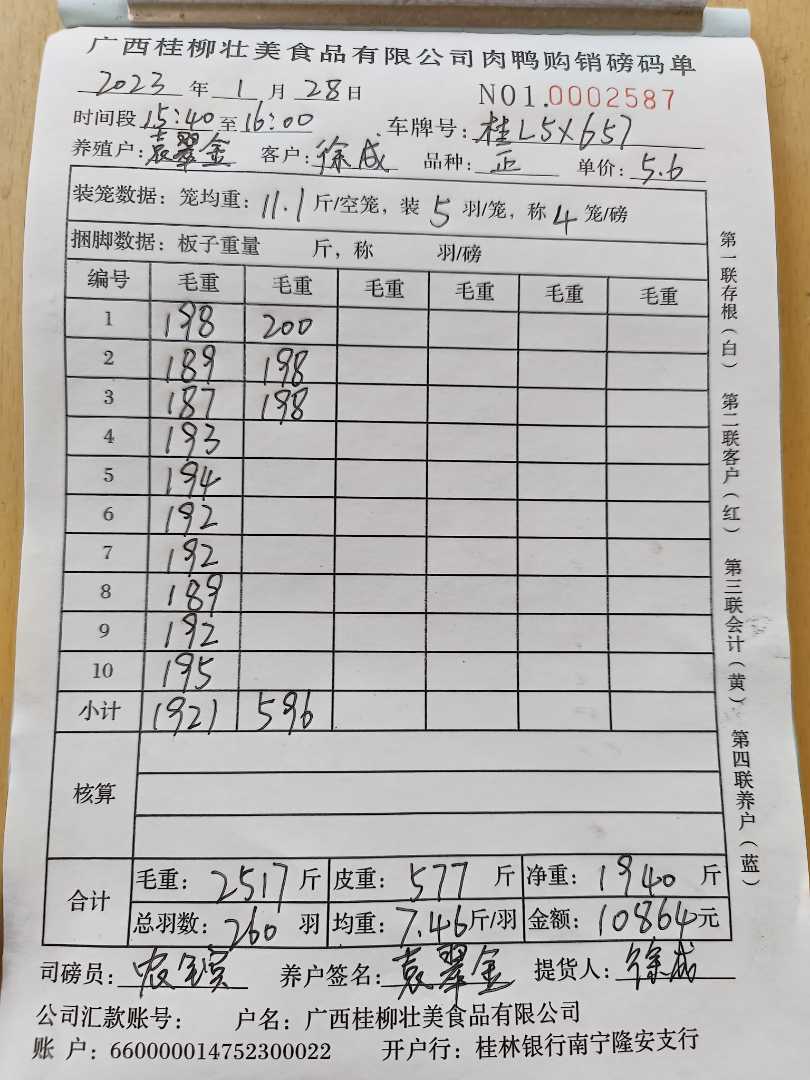 广西桂柳壮美食品有限公司肉鸭购销磅码单
2023年1月28日 NO1.0002587
时间段15:40至16:00 车牌号:桂L5X657
养殖户:袁翠金 客户:徐成 品种:正 单价:5.6
装笼数据:笼均重:11.1斤/空笼,装5羽/笼,称4笼/磅
捆脚数据:板子重量 斤,称 羽/磅
编号 毛重 毛重 毛重 毛重 毛重 毛重
1 198 200
2 189 198
3 187 198
4 193
5 194
6 192
7 192
8 189
9 192
10 195
小计 1921 596
核算
合计 毛重:2517斤 皮重:577斤 净重:1940斤
总羽数:260羽 均重:7.46斤/羽 金额:10864元
司磅员: 养户签名:袁翠金 提货人:徐成
公司汇款账号: 户名:广西桂柳壮美食品有限公司
账 户:660000014752300022 开户行:桂林银行南宁隆安支行
第一联存根(白) 第二联客户(红) 第三联会计(黄) 第四联养户(蓝)